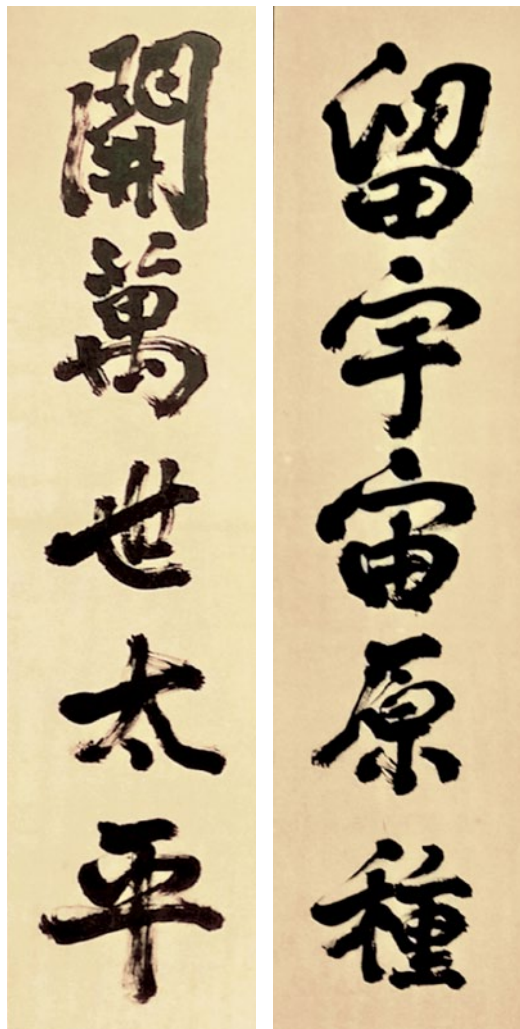 留宇宙原種
開萬世太平